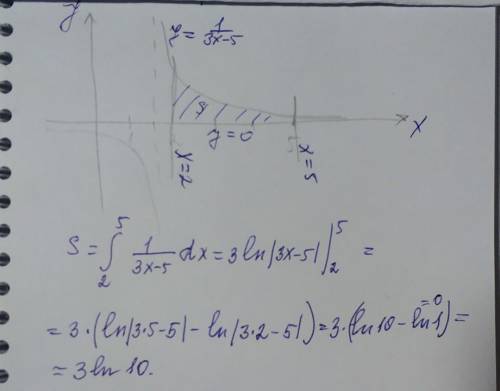 y
y = 1/(3x-5)
S
y=0
5
x
x=2
x=5
S = ∫₂⁵ 1/(3x-5) dx = 3 ln|3x-5| |₂⁵ =
= 3·(ln|3·5-5| - ln|3·2-5|) = 3·(ln10 - ln1) =
=0
= 3 ln 10.